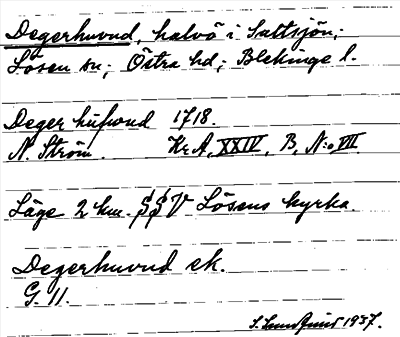 Degerhuvud, halvö i Saltsjön;
Lösen sn; Östra hd; Blekinge l.
Deger hufwud 1718.
N. Ström. Kr. A, XXIV, B, N:o VII.
Läge 2 km. SSV Lösens kyrka.
Degerhuvud ek.
G. 11.
S. Lundquist 1937.